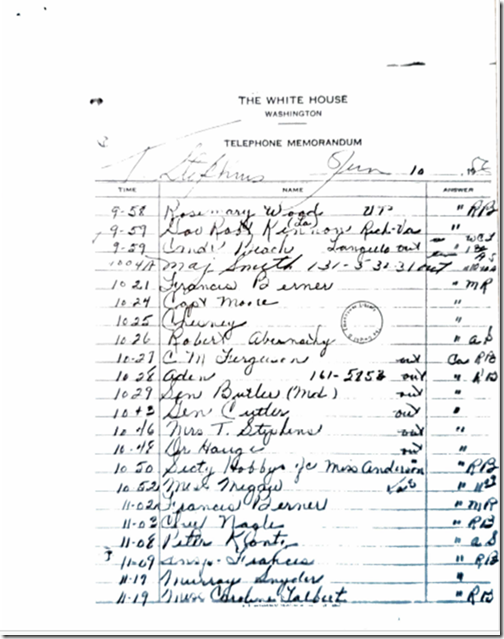 THE WHITE HOUSE
WASHINGTON
TELEPHONE MEMORANDUM
T Stephens Jan 10
TIME NAME ANSWER
9-58 Rosemary Woods UP " RB
9-59 Gov Rob Kennon (La) "
9-59 Cmdr Beach out
1004A Maj Smyth 131-S out
10 21 Francis Berner " MR
10 24 Capt Moore "
10 25 Chesney "
10 26 Robert Abernathy " aS
10-27 C M Ferguson out RB
10-28 Aden 161-5853 out " RB
10 29 Sen Butler (Md) out "
10 43 Gen Cutler out "
10-46 Mrs T. Stephens out "
10-48 Dr Hauge out "
10 50 Secty Hobby Miss Anderson " RB
10 52 Miss
11-02 Francis Berner " MR
11-03 Chief Nagle " RB
11-08 Peter " aS
11-09 Insp. Francis " RB
11-17 Murray Snyder "
11-19 Miss Caroline Talbert " RB